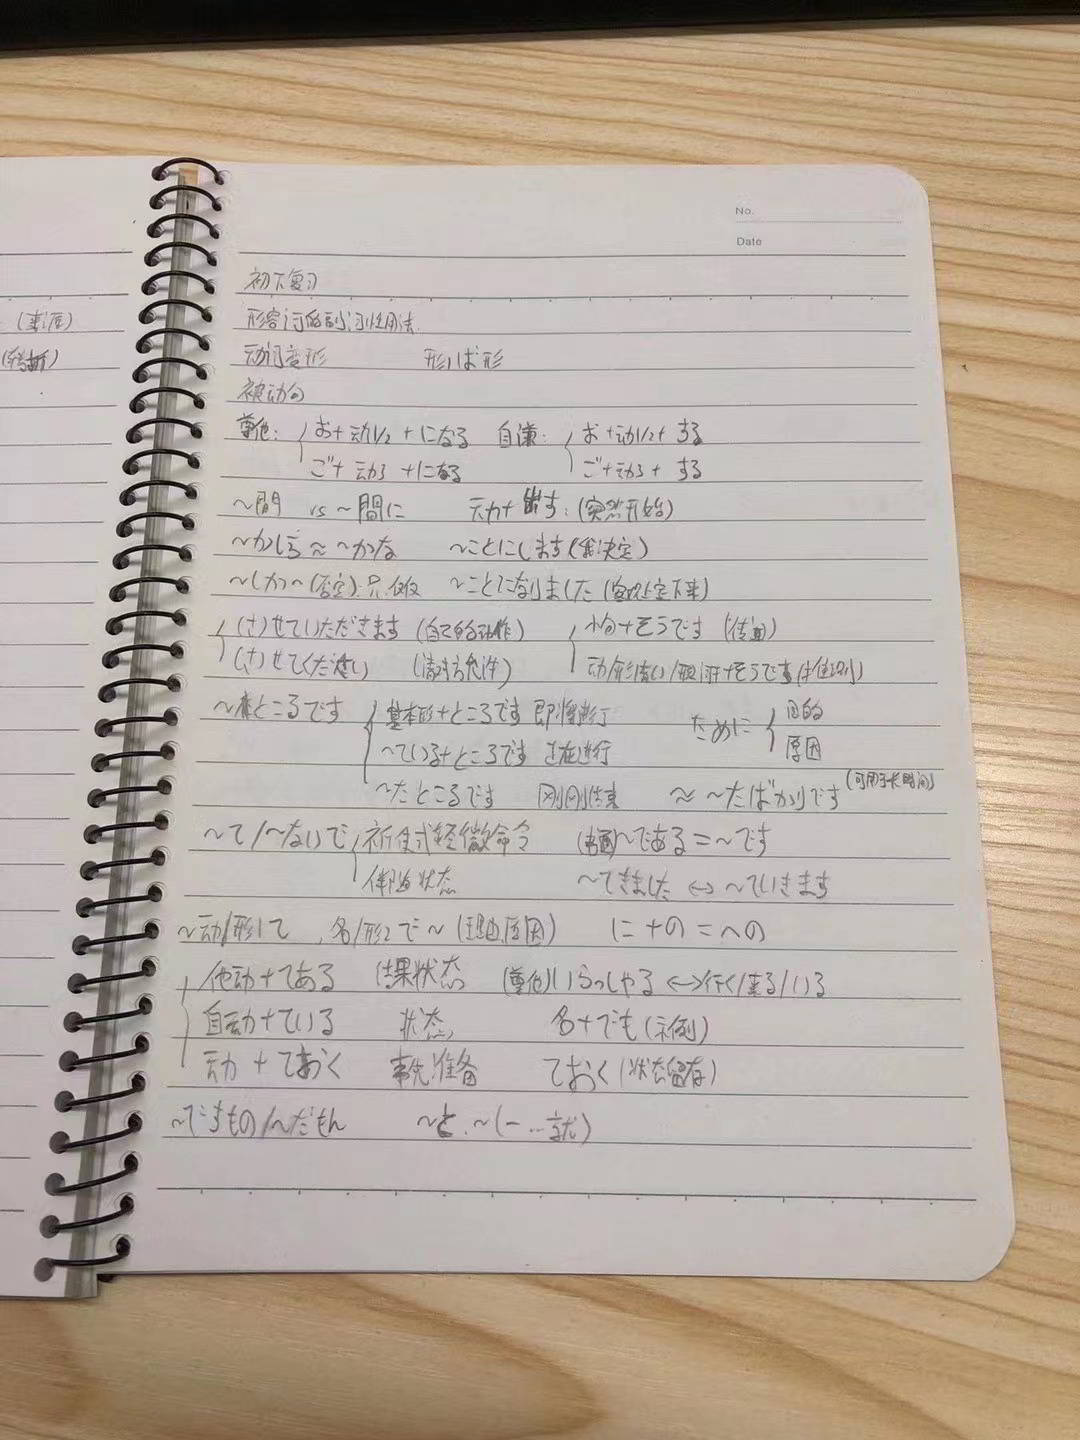 No.
Date
(来源)
(转折)
初下复习
形容词的副词性用法
动词变形 形1ば形
被动句
尊他: お+动1/2+になる 自谦: お+动1/2+する
ご+动3+になる ご+动3+する
~間 vs ~間に 动+出す:(突然开始)
~かしら≈~かな ~ことにします(我决定)
~しか~(否定):只、仅仅 ~ことになりました(客观上定下来)
(さ)せていただきます(自己的动作) 小句+そうです(传闻)
(さ)せてください (请对方允许) 动/形 +そうです
~ところです 基本形+ところです 即将进行 ために 目的
~ている+ところです 正在进行 原因
~たところです 刚刚结束 ≈ ~たばかりです(可用于长时间)
~て/~ないで 祈使式轻微命令 (书面)~である=~です
伴随状态 ~てきました ↔ ~ていきます
~动/形1て、名/形2で~(理由原因) に+の=への
他动+てある 结果状态 (尊他)いらっしゃる↔行く/来る/いる
自动+ている 状态 名+でも(示例)
动+ておく 事先准备 ておく(状态留存)
~ですもの/~だもん ~と、~(一…就)